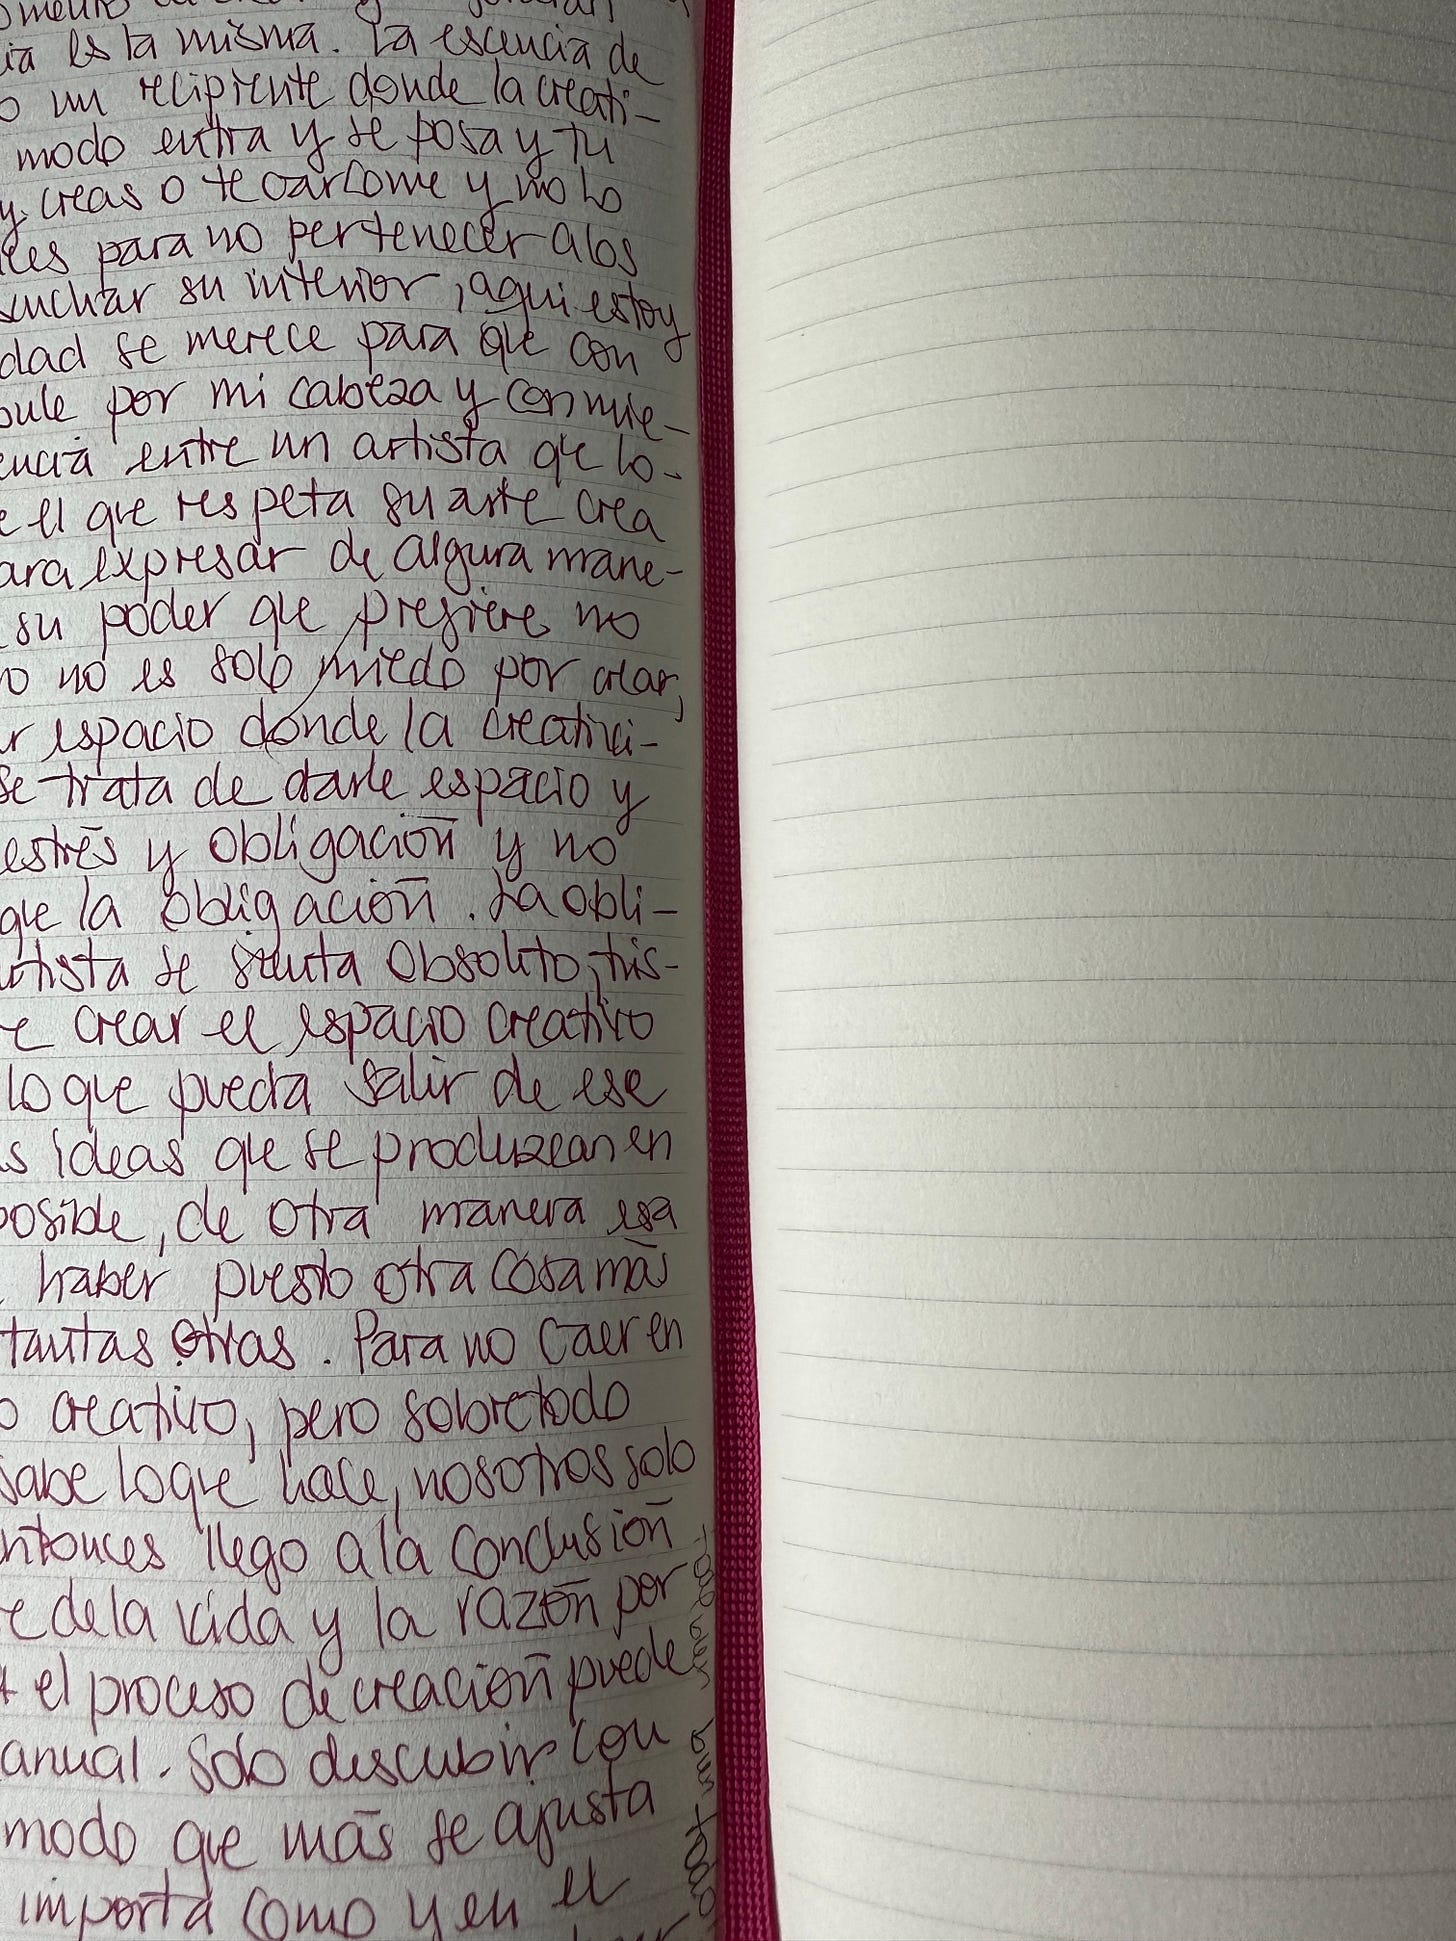 ia es la misma. La escencia de
o un recipiente donde la creati-
modo entra y se posa y tu
y creas o te carcome y no lo
para no pertenecer a los
su interior, aqui estoy
dad se merece para que con
por mi cabeza y con mie-
encia entre un artista que lo-
e el que respeta su arte crea
ara expresar de alguna mane-
su poder que prefiere no
o no es solo miedo por crear,
r espacio donde la creativi-
se trata de darle espacio y
estrés y obligación y no
que la obligación. La obli-
artista se sienta obsoleto, tris-
e crear el espacio creativo
lo que pueda salir de ese
s ideas que se produzcan en
posible, de otra manera esa
haber puesto otra cosa más
tantas otras. Para no caer en
o creativo, pero sobretodo
sabe lo que hace, nosotros solo
entonces llego a la conclusión
e de la vida y la razón por
el proceso de creación puede
anual. Solo descubrir con
modo que más se ajusta
importa como y en el